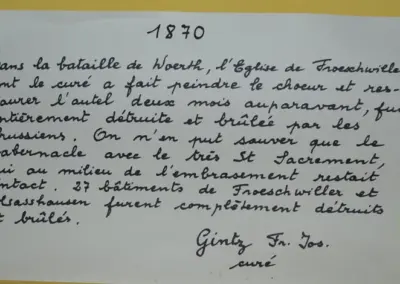 1870
ans la bataille de Woerth, l'Eglise de Froeschwille
ont le curé a fait peindre le choeur et res-
aurer l'autel deux mois auparavant, fu
ntièrement détruite et brûlée par les
russiens. On n'en put sauver que le
abernacle avec le très St Sacrement,
ui au milieu de l'embrasement restait
ntact. 27 bâtiments de Froeschwiller et
lsasshausen furent complètement détruits
t brûlés.
Gintz Fr. Jos.
curé